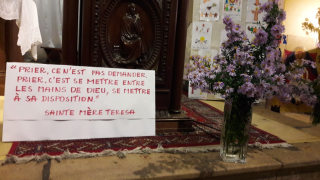 "PRIER, CE N'EST PAS DEMANDER.
PRIER, C'EST SE METTRE ENTRE
LES MAINS DE DIEU, SE METTRE
À SA DISPOSITION"
SAINTE MÈRE TERESA